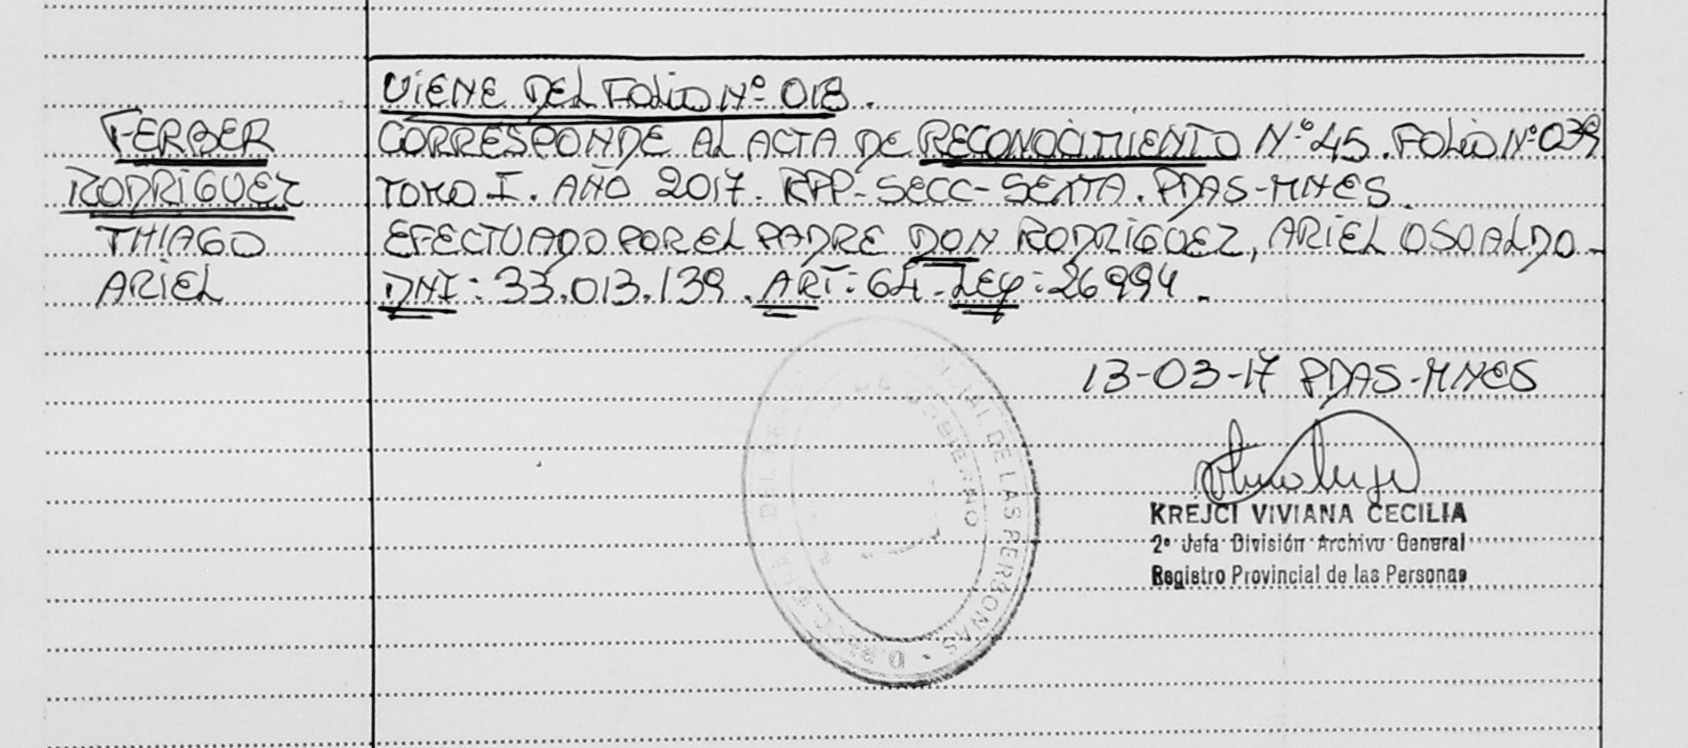 VIENE DEL FOLIO Nº 018.
FERBER
RODRIGUEZ
THIAGO
ARIEL
CORRESPONDE AL ACTA DE RECONOCIMIENTO Nº 45. FOLIO Nº 039
TOMO I. AÑO 2017. RPP-SECC-SEXTA. PDAS-MNES.
EFECTUADO POR EL PADRE DON RODRIGUEZ, ARIEL OSVALDO-
DNI: 33.013.139. ART: 64-LEY: 26994-
13-03-17 PDAS-MNES
KREJCI VIVIANA CECILIA
2º Jefa División Archivo General
Registro Provincial de las Personas
DE LAS PERSONAS
DE GOBIERNO